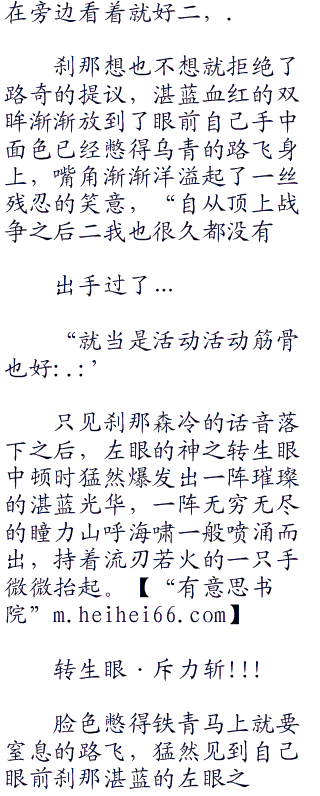 在旁边看着就好二，.
刹那想也不想就拒绝了
路奇的提议，湛蓝血红的双
眸渐渐放到了眼前自己手中
面色已经憋得乌青的路飞身
上，嘴角渐渐洋溢起了一丝
残忍的笑意，“自从顶上战
争之后二我也很久都没有
出手过了…
“就当是活动活动筋骨
也好:.:’
只见刹那森冷的话音落
下之后，左眼的神之转生眼
中顿时猛然爆发出一阵璀璨
的湛蓝光华，一阵无穷无尽
的瞳力山呼海啸一般喷涌而
出，持着流刃若火的一只手
微微抬起。【“有意思书
院”m.heihei66.com】
转生眼·斥力斩!!!
脸色憋得铁青马上就要
窒息的路飞，猛然见到自己
眼前刹那湛蓝的左眼之